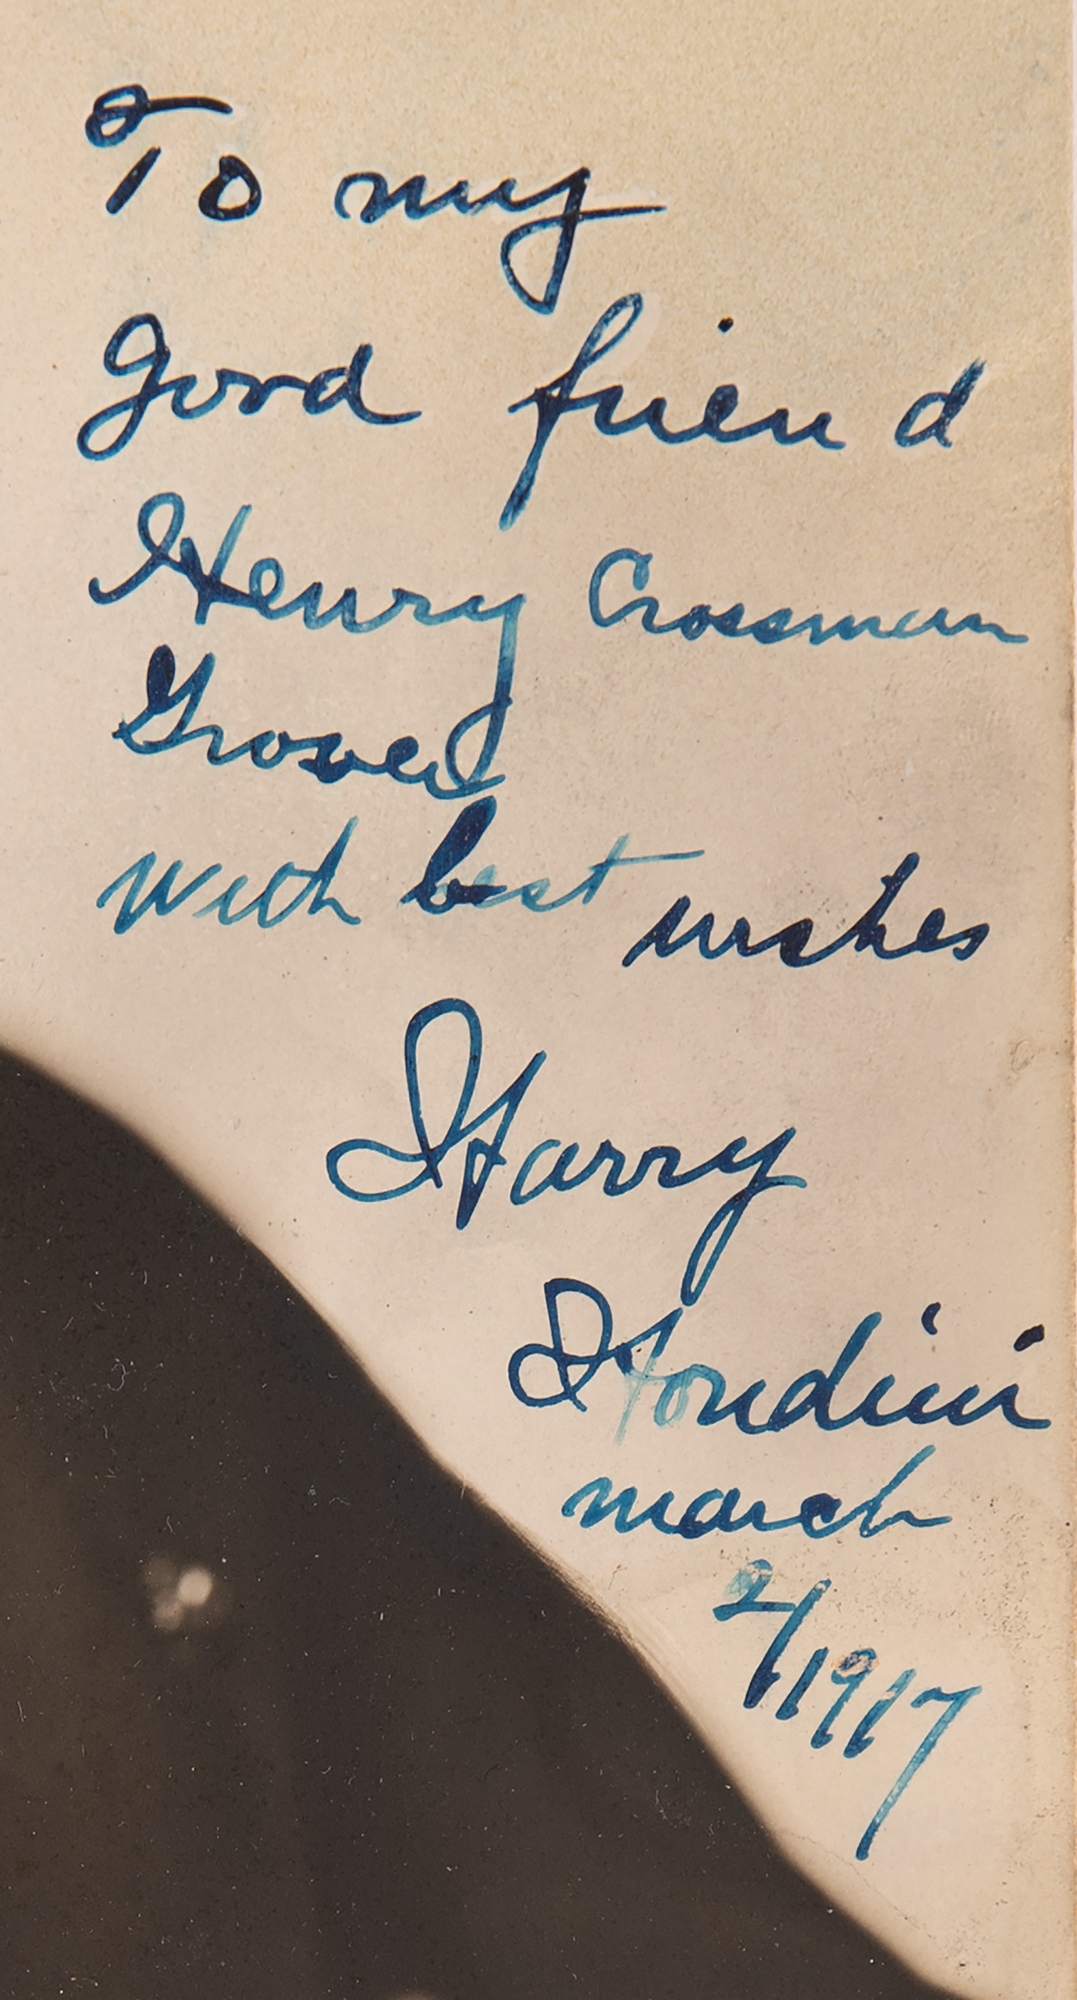 To my
good friend
Henry Crossman
Grover
with best wishes
Harry
Houdini
march
2/1917